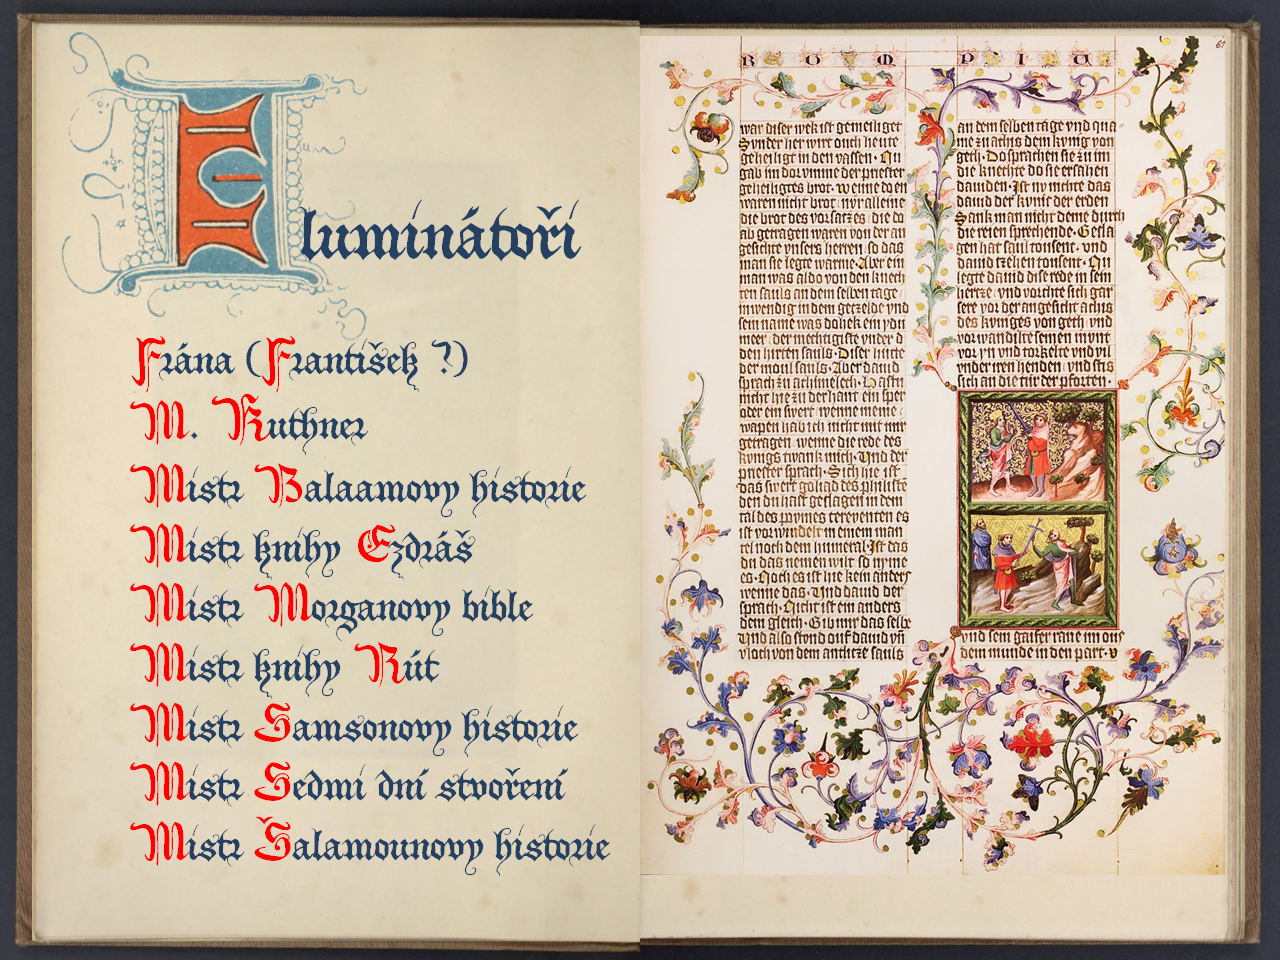 Iluminátoři
Frána (František ?)
M. Kuthner
Mistr Balaamovy historie
Mistr knihy Ezdráš
Mistr Morganovy bible
Mistr knihy Rút
Mistr Samsonovy historie
Mistr Sedmi dní stvoření
Mistr Šalamounovy historie
61
war diser wek ist gemeiliget
Sunder her wirt ouch heute
geheiligt in den vassen. Nu
gab im der priester
geheiligtes brot. wenne do en
waren nicht brot. nyr alleine
die brot des vorsatzes. die do
ab getragen waren von der an
gesichte vnsers herren. so das
man sie legte warme. Aber ein
man was aldo von den knech
ten sauls an dem selben tage
inwendig in dem getzelde vnd
sein name was dohek ein ydu
meer. der mechtigiste vnder d
den hirten sauls. Diser hirte
der moul sauls. Aber dauid
sprach zu achimelech. Hastu
nicht hie zu der hant ein sper
oder ein swert. wenne meine
wapen hab ich nicht mit mir
getragen. wenne die rede des
konigs twank mich. Vnd der
priester sprach. Sich hie ist
das swert goliad des philiste
den du hast geslagen in dem
tal des
ist vorwindelt in einem man
tel noch dem humeral. Ist das
du das nemen wilt so nyme
es. Noch es ist hie kein anders
wenne das. Vnd dauid der
sprach. Nicht ist ein anders
dem gleich. Gib mir das selbe
Vnd also stvnd ouf dauid vn
vloch von dem antlitze sauls
an dem selben tage vnd qua
me zu achis dem kvnig von
geth. Do sprachen sie zu im
die knechte do sie ersahen
dauiden. Ist ny nichte das
dauid der kvnik der erden
Sank man nicht deme durch
die reien sprechende. Gesla
gen hat saul tousent. vnd
dauid tzehen tousent. Nu
legte dauid dise rede in sein
hertze. vnd vorchte sich gar
sere vor der angesicht achis
des kvniges von geth vnd
vorwandilte seinen mont
vor yn vnd torkelte vnd vil
vnder iren henden. vnd stis
sich an die tür der pforten.
vnd sein gaifer rane im ous
dem munde in den part. v